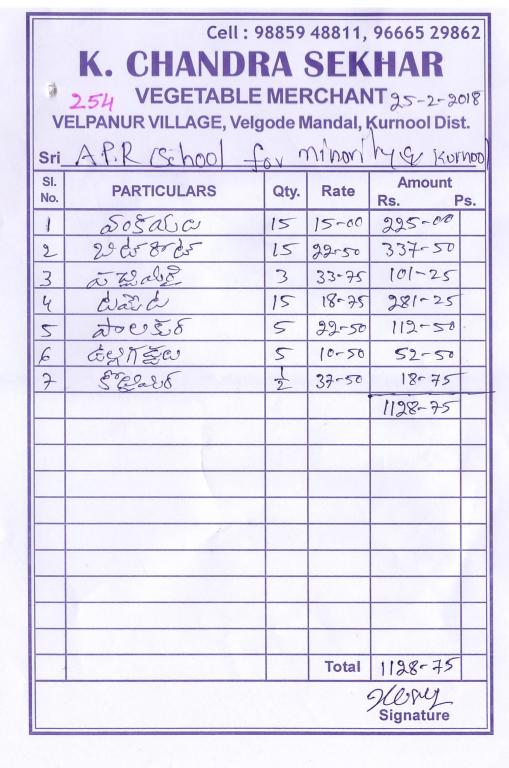 Cell : 98859 48811, 96665 29862
K. CHANDRA SEKHAR
254 VEGETABLE MERCHANT 25-2-2018
VELPANUR VILLAGE, Velgode Mandal, Kurnool Dist.
Sri A.P.R School for minority Kurnool
Sl. No. PARTICULARS Qty. Rate Amount Rs. Ps.
1 వంకాయలు 15 15-00 225-00
2 బీట్‌రూట్ 15 22-50 337-50
3 పచ్చిమిర్చి 3 33-75 101-25
4 టమోట 15 18-75 281-25
5 పాలకూర 5 22-50 112-50
6 ఉల్లిగడ్డలు 5 10-50 52-50
7 కొత్తిమీర ½ 37-50 18-75
1128-75
Total 1128-75
Signature